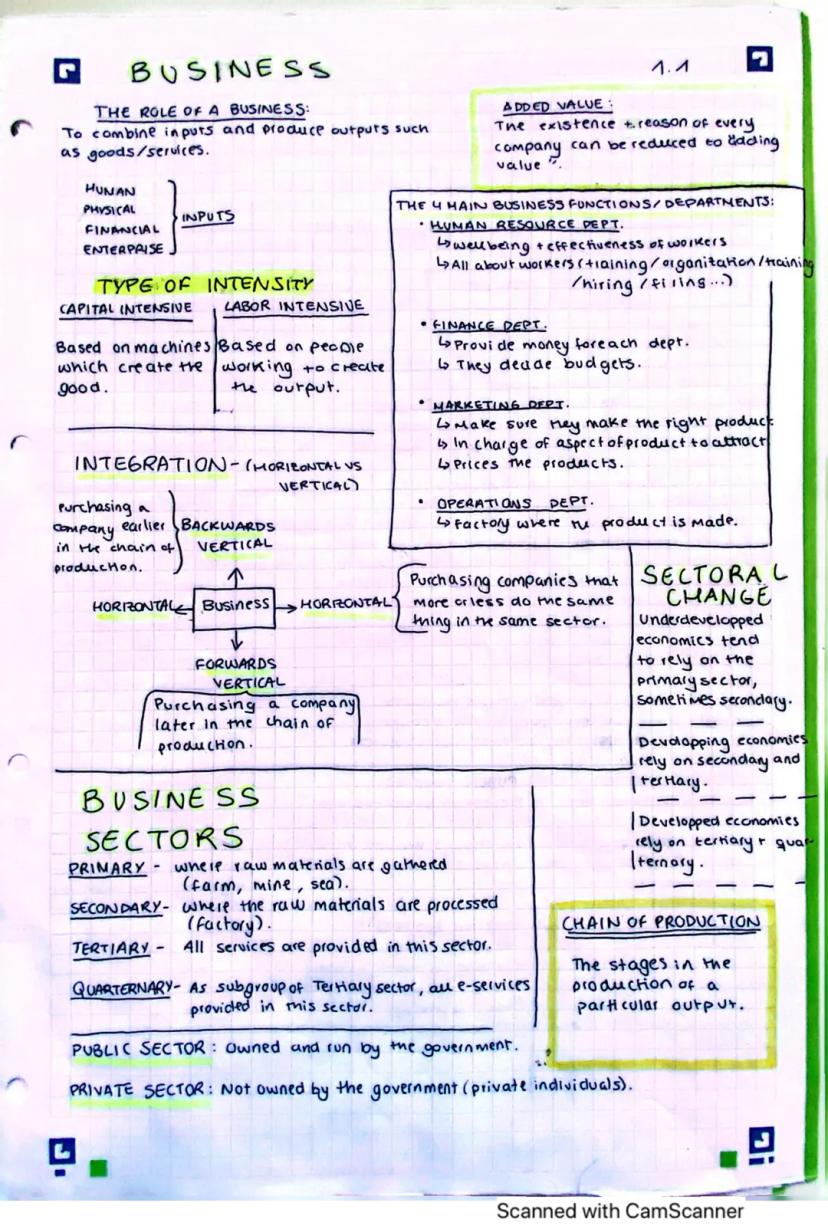 BUSINESS
1.1
THE ROLE OF A BUSINESS:
To combine inputs and produce outputs such
as goods/services.
HUMAN
PHYSICAL
FINANCIAL
ENTERPRAISE
INPUTS
ADDED VALUE:
The existence + reason of every
company can be reduced to "adding
value".
TYPE OF INTENSITY
CAPITAL INTENSIVE
Based on machines
which create the
good.
LABOR INTENSIVE
Based on people
working to create
the output.
THE 4 MAIN BUSINESS FUNCTIONS/DEPARTMENTS:
• HUMAN RESOURCE DEPT.
↳ wellbeing + effectiveness of workers
↳ All about workers (training/organization/training
/hiring/firing...)
• FINANCE DEPT.
↳ Provide money foreach dept.
↳ They decide budgets.
• MARKETING DEPT.
↳ Make sure they make the right product
↳ In charge of aspect of product to attract
↳ Prices the products.
• OPERATIONS DEPT.
↳ Factory where the product is made.
INTEGRATION - (HORIZONTAL VS
VERTICAL)
Purchasing a
company earlier
in the chain of
production.
BACKWARDS
VERTICAL
HORIZONTAL ← Business → HORIZONTAL
Purchasing companies that
more or less do the same
thing in the same sector.
FORWARDS
VERTICAL
Purchasing a company
later in the chain of
production.
SECTORAL
CHANGE
Underdevelopped
economics tend
to rely on the
primary sector,
sometimes secondary.
Developping economies
rely on secondary and
tertiary.
Developped economies
rely on tertiary + quar-
ternory.
BUSINESS
SECTORS
PRIMARY - where raw materials are gathered
(farm, mine, sea).
SECONDARY- where the raw materials are processed
(factory).
TERTIARY - All services are provided in this sector.
QUARTERNARY- As subgroup of Tertiary sector, all e-services
provided in this sector.
CHAIN OF PRODUCTION
The stages in the
production of a
particular output.
PUBLIC SECTOR: Owned and run by the government.
PRIVATE SECTOR: Not owned by the government (private individuals).
Scanned with CamScanner